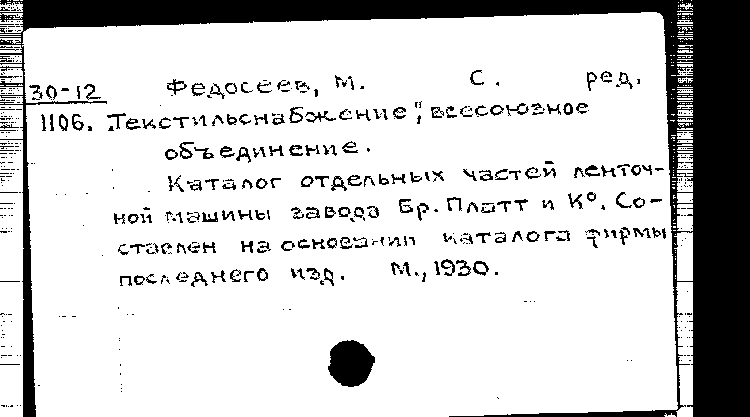 30-12 Федосеев, М. С. ред.
1106. „Текстильснабжение", всесоюзное
объединение.
Каталог отдельных частей ленточ-
ной машины завода Бр. Платт и К⁰. Со-
ставлен на основании каталога фирмы
последнего изд. М., 1930.